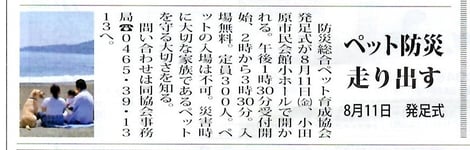 ペット防災
走り出す
8月11日　発足式
防災総合ペット育成協会
発足式が8月11日㈮、小田
原市民会館小ホールで開か
れる。午後1時30分受付開
始、2時から3時30分。入
場無料。定員300人。ペ
ットの入場は不可。災害時
に大切な家族であるペット
を守る大切さを知る。
問い合わせは同協会事務
局☎0465・39・13
13へ。